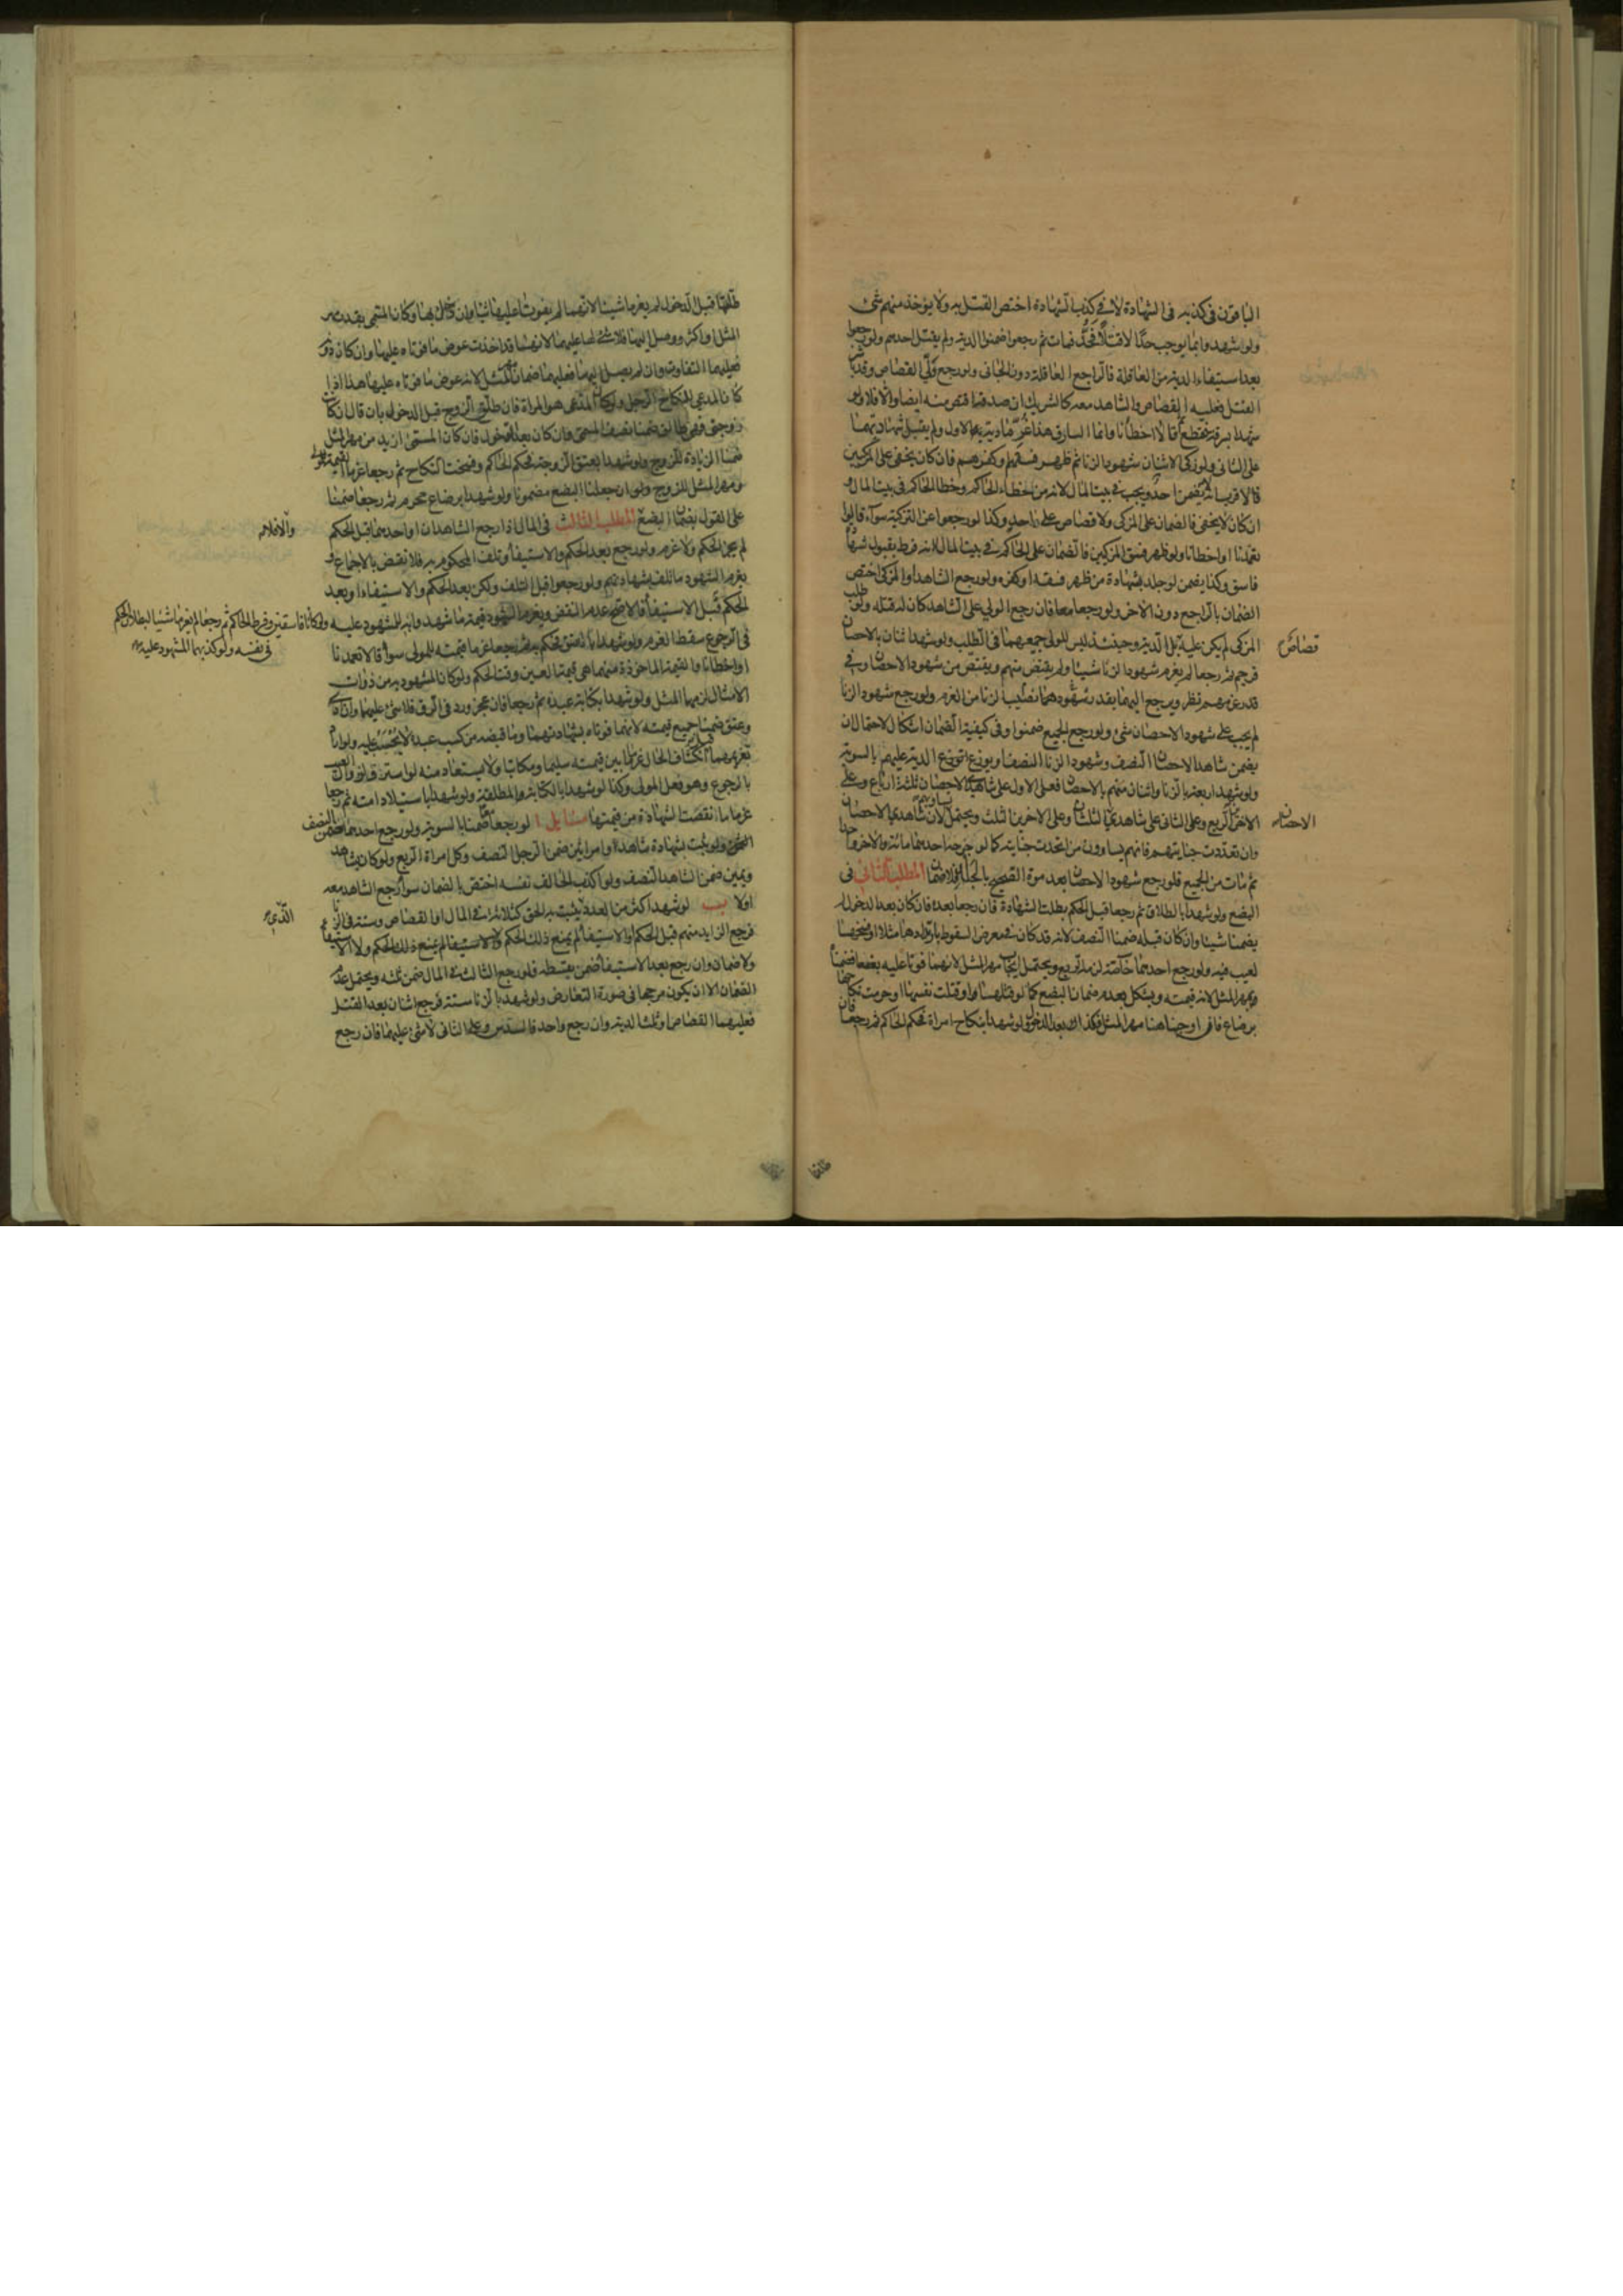 الباقون فى كذبه فى الشهادة لا فى كذب الشهادة اختص القتل به ولا يؤخذ منهم شئ
ولو شهدوا بما يوجب حدا لا قتلا فحد فمات ثم رجعوا ضمنوا الدية ولم يقتل احدهم ولو رجعوا
بعد استيفاء الدية من العاقلة فالراجع العاقلة دون الجانى ولو رجع ولى القصاص وقد باشر
القتل فعليه القصاص والشاهد معه كالشريك ان صدقه اقتص منه ايضا والا فلا ولو
شهدا بسرقة فقطع ثم قالا اخطأنا وانما السارق هذا غرما دية يد الاول ولم يقبل شهادتهما
على الثانى ولو زكى الاثنان شهود الزنا ثم ظهر فسقهم او كفرهم فان كان يخفى على المزكيين
فالاقرب انه لا يضمن احد ويجب فى بيت المال لانه من خطاء الحاكم وخطا الحاكم فى بيت المال و
ان كان لا يخفى فالضمان على المزكى ولا قصاص على احد وكذا لو رجعوا عن التزكية سواء قالوا
تعمدنا او اخطانا ولو ظهر فسق المزكيين فالضمان على الحاكم فى بيت المال لانه فرط بقبول شهادة
فاسق وكذا يضمن لو جلد بشهادة من ظهر فسقه او كفره ولو رجع الشاهد او المزكى اختص
الضمان بالراجع دون الاخر ولو رجعا معا فان رجع الولى على الشاهد كان له قتله ولو طلب
المزكى لم يكن عليه بل الدية وحينئذ ليس للولى جمعهما فى الطلب ولو شهد اثنان بالاحصان
قصاص
فرجم ثم رجعا لم يغرم شهود الزنا شيئا ولم يقتص منهم ويقتص من شهود الاحصان وفى
قدر غرمهم نظر ويرجع اليهما بقدر شهودهما نصيب الزنا من الغرم ولو رجع شهود الزنا
لم يجب على شهود الاحصان شئ ولو رجع الجميع ضمنوا وفى كيفية الضمان اشكال لاحتمال ان
يضمن شاهد الاحصان النصف وشهود الزنا النصف او يوزع توزع الدية عليهم بالسوية
ولو شهد اربعة بالزنا واثنان منهم بالاحصان فعلى الاول على شاهدى الاحصان ثلثة ارباع وعلى
الاخرين الربع وعلى الثانى على شاهديه الثلثان وعلى الاخرين الثلث ويحتمل تساويهم لان شاهدى الاحصان
الاحصان
وان تعددت جنايتهم فانهم يساوون من اتحدت جنايته كما لو جرحه احدهما مائة والاخر واحدا
ثم مات من الجميع فلو رجع شهود الاحصان بعد موت القصيح بالجلد فلا ضمان المطلب الثانى فى
البضع ولو شهدا بالطلاق ثم رجعا قبل الحكم بطلت الشهادة فان رجعا بعده فان كان بعد الدخول لم
يضمنا شيئا وان كان قبله ضمنا النصف لانه قد كان فى معرض السقوط بارتدادها مثلا او فسخها
لعيب فيه ولو رجع احدهما خاصة لزمه الربع ويحتمل ايجاب مهر المثل لانهما فوتا عليه بضعها فضمنا
مهر المثل لانه قيمته ويشكل بعدم ضمان البضع كما لو قتلها او قتلت نفسها او حرمت نكاحها
برضاع فانى اوجبنا هنا مهر المثل فكذا لك بعد الدخول ولو شهدا بنكاح امراة فحكم الحاكم ثم رجعا فان
طلقها
طلقها قبل الدخول لم يغرما شيئا لانهما لم يفوتا عليها شيئا وان دخل بها وكان المسمى بقدر مهر
المثل او اكثر ووصل اليها فلا شئ لها عليهما لانها قد اخذت عوض ما فوتاه عليها وان كان دونه
فعليهما التفاوت وان لم يصل اليها فعليهما ضمان مهر المثل لانه عوض ما فوتاه عليها هذا اذا
كان المدعى للنكاح الرجل ولو كان المدعى هو المراة فان طلق الزوج قبل الدخول بان قال ان كانت
زوجتى فهى طالق ضمنا نصف المسمى وان كان بعد الدخول فان كان المسمى ازيد من مهر المثل
ضمنا الزيادة للزوج ولو شهدا بعتق الزوجة فحكم الحاكم وفسخت النكاح ثم رجعا غرما القيمة للمولى
ومهر المثل للزوج ولو ان جعلنا البضع مضمونا ولو شهدا برضاع محرم ثم رجعا ضمنا
على القول بضمان البضع المطلب الثالث فى المال اذا رجع الشاهدان او احدهما قبل الحكم
والا فلا
لم يجز الحكم ولا غرم ولو رجع بعد الحكم والاستيفاء وتلف المحكوم به فلا نقض بالاجماع و
يغرم الشهود ما تلف بشهادتهم ولو رجعوا قبل التلف ولكن بعد الحكم والاستيفاء او بعد
الحكم قبل الاستيفاء فالاصح عدم النقض ويغرم الشهود قيمة ما شهدوا به للمشهود عليه ولو كانا فاسقين وفرط الحاكم ثم رجعا لم يغرما شيئا لبطلان الحكم
فى نفسه ولو كذبهما المشهود عليه
فى الرجوع سقط الغرم ولو شهدا بالعتق فحكم به ثم رجعا غرما قيمته للمولى سواء قالا تعمدنا
او اخطانا والقيمة الماخوذة منهما هى قيمة العين وقت الحكم ولو كان المشهود به من ذوات
الامثال لزمهما المثل ولو شهدا بكتابة عبده ثم رجعا فان عجز ورد فى الرق فلا شئ عليهما وان ادى
وعتق ضمنا جميع قيمته لانهما فوتاه بشهادتهما وما قبضه من كسب عبده لا يحسب عليه ولو اراد
تغريمهما قبل انكشاف الحال غرما ما بين قيمته سليما ومكاتبا ولا يستعاد منه لو استرق لزوال العيب
بالرجوع وهو فعل المولى وكذا لو شهدا بالكتابة المطلقة ولو شهدا باستيلاد امته ثم رجعا
غرما ما نقصت الشهادة من قيمتها مسايل ا لو رجعا معا ضمنا بالسوية ولو رجع احدهما ضمن النصف
ولو ثبت بشهادة شاهد وامراتين ضمن الرجل النصف وكل امراة الربع ولو كان بشاهد
ويمين ضمن الشاهد النصف ولو اكذب الحالف نفسه اختص بالضمان سواء رجع الشاهد معه
اولا ب لو شهد اكثر من العدد الذى يثبت به الحق كثلاثة فى المال او القصاص وستة فى الزنا
الذى
فرجع الزايد منهم قبل الحكم او الاستيفاء لم يمنع ذلك الحكم ولا الاستيفاء
ولا ضمان وان رجع بعد الاستيفاء ضمن بقسطه فلو رجع الثالث فى المال ضمن ثلثه ويحتمل عدم
الضمان الا ان يكون مرجحا فى صورة التعارض ولو شهد بالزنا ستة فرجع اثنان بعد القتل
فعليهما القصاص او ثلث الدية وان رجع واحد فالسدس وعلى الثانى لا شئ عليهما فان رجع